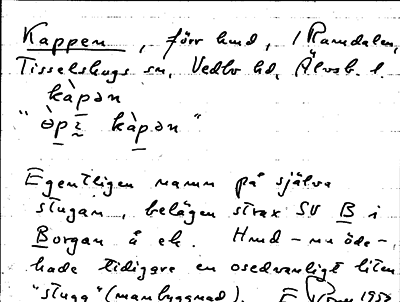 Kappen, förr hmd, i Ramdalen,
Tisselskogs sn, Vedbo hd, Älvsb. l.
kàpən
" òpɪ kàpən "
Egentligen namn på själva
stugan, belägen strax SV B i
Borgan å ek. Hmd - nu öde -,
hade tidigare en osedvanligt liten
"stuga" (manbyggnad). 1955